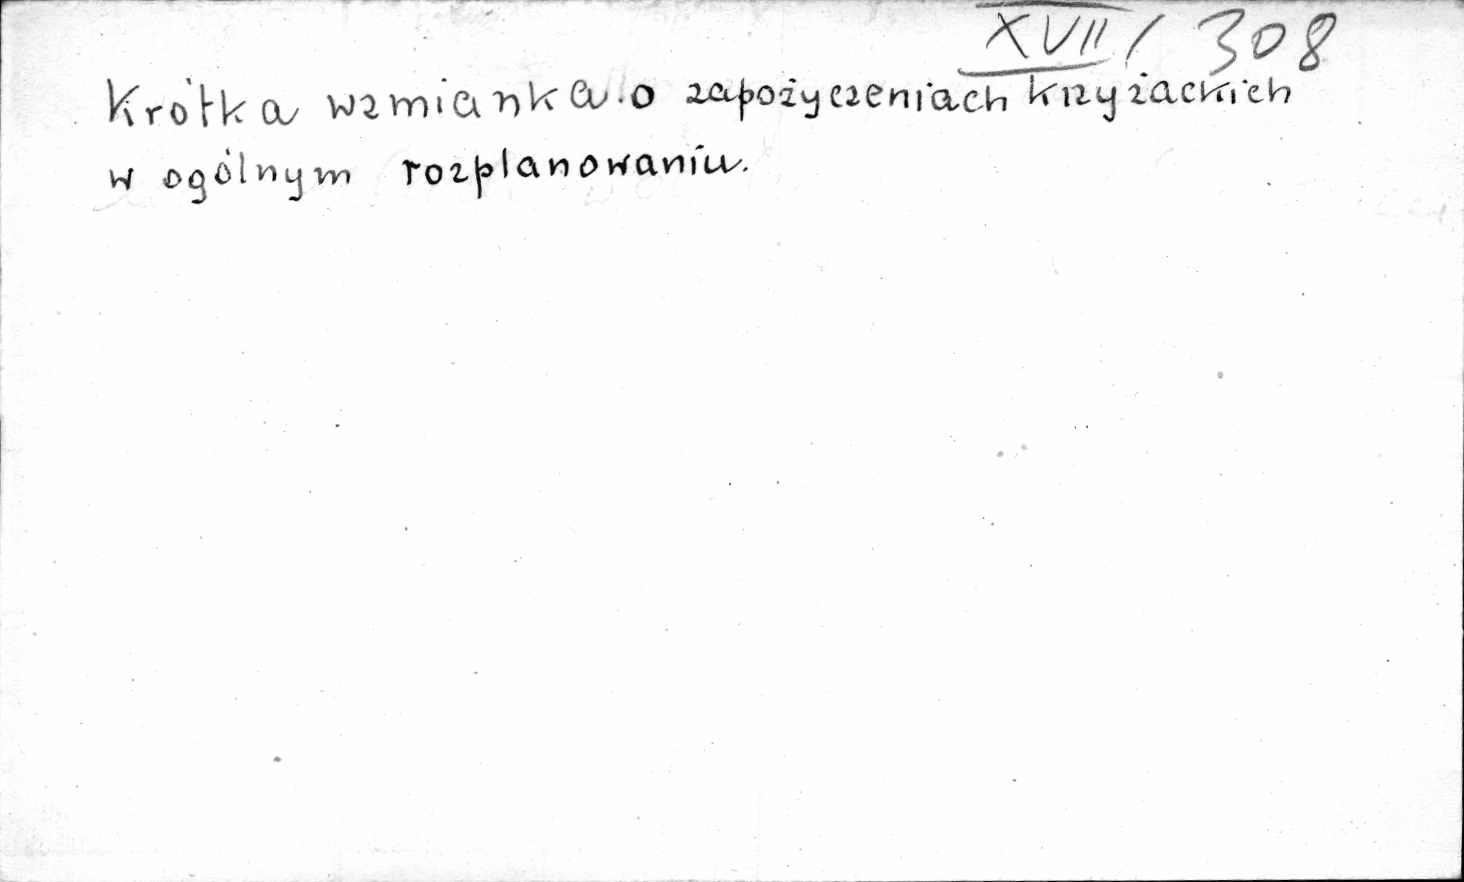 XVII / 308
Krótka wzmianka o zapożyczeniach krzyżackich
w ogólnym rozplanowaniu.